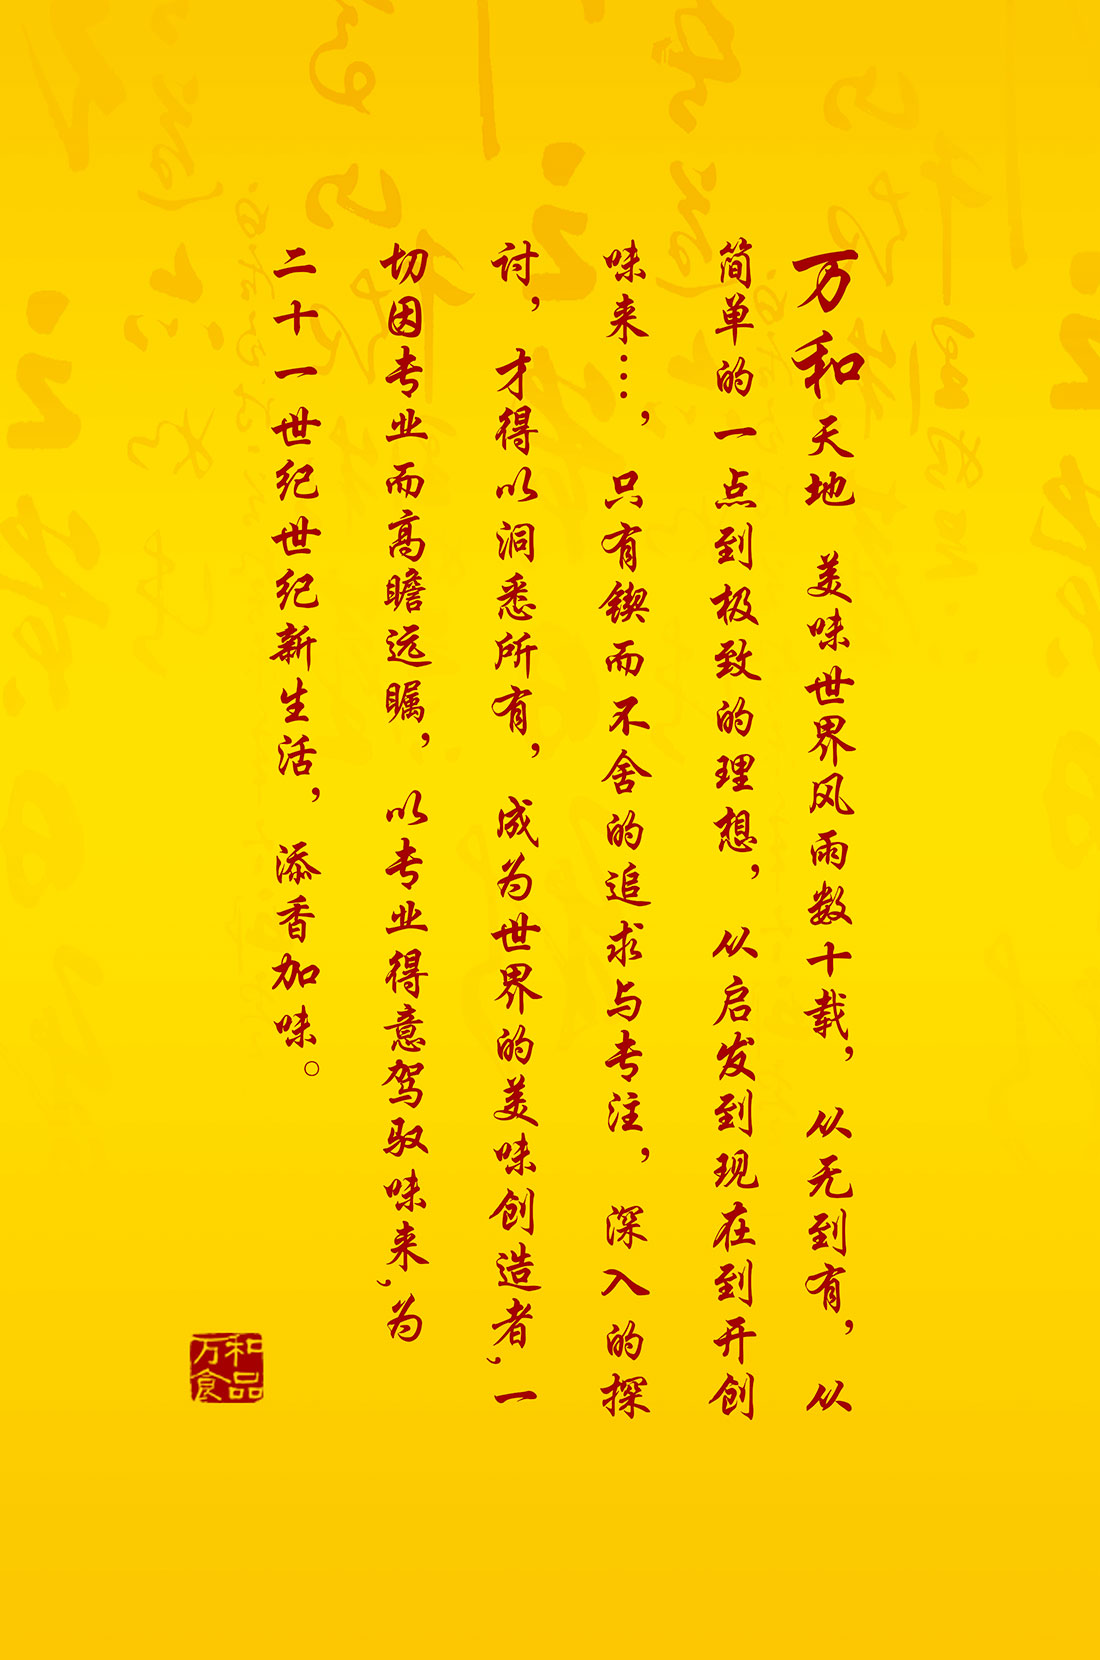 万和天地 美味世界风雨数十载，从无到有，从
简单的一点到极致的理想，从启发到现在到开创
味来…，只有锲而不舍的追求与专注，深入的探
讨，才得以洞悉所有，成为世界的美味创造者，一
切因专业而高瞻远瞩，以专业得意驾驭味来，为
二十一世纪世纪新生活，添香加味。
万和食品